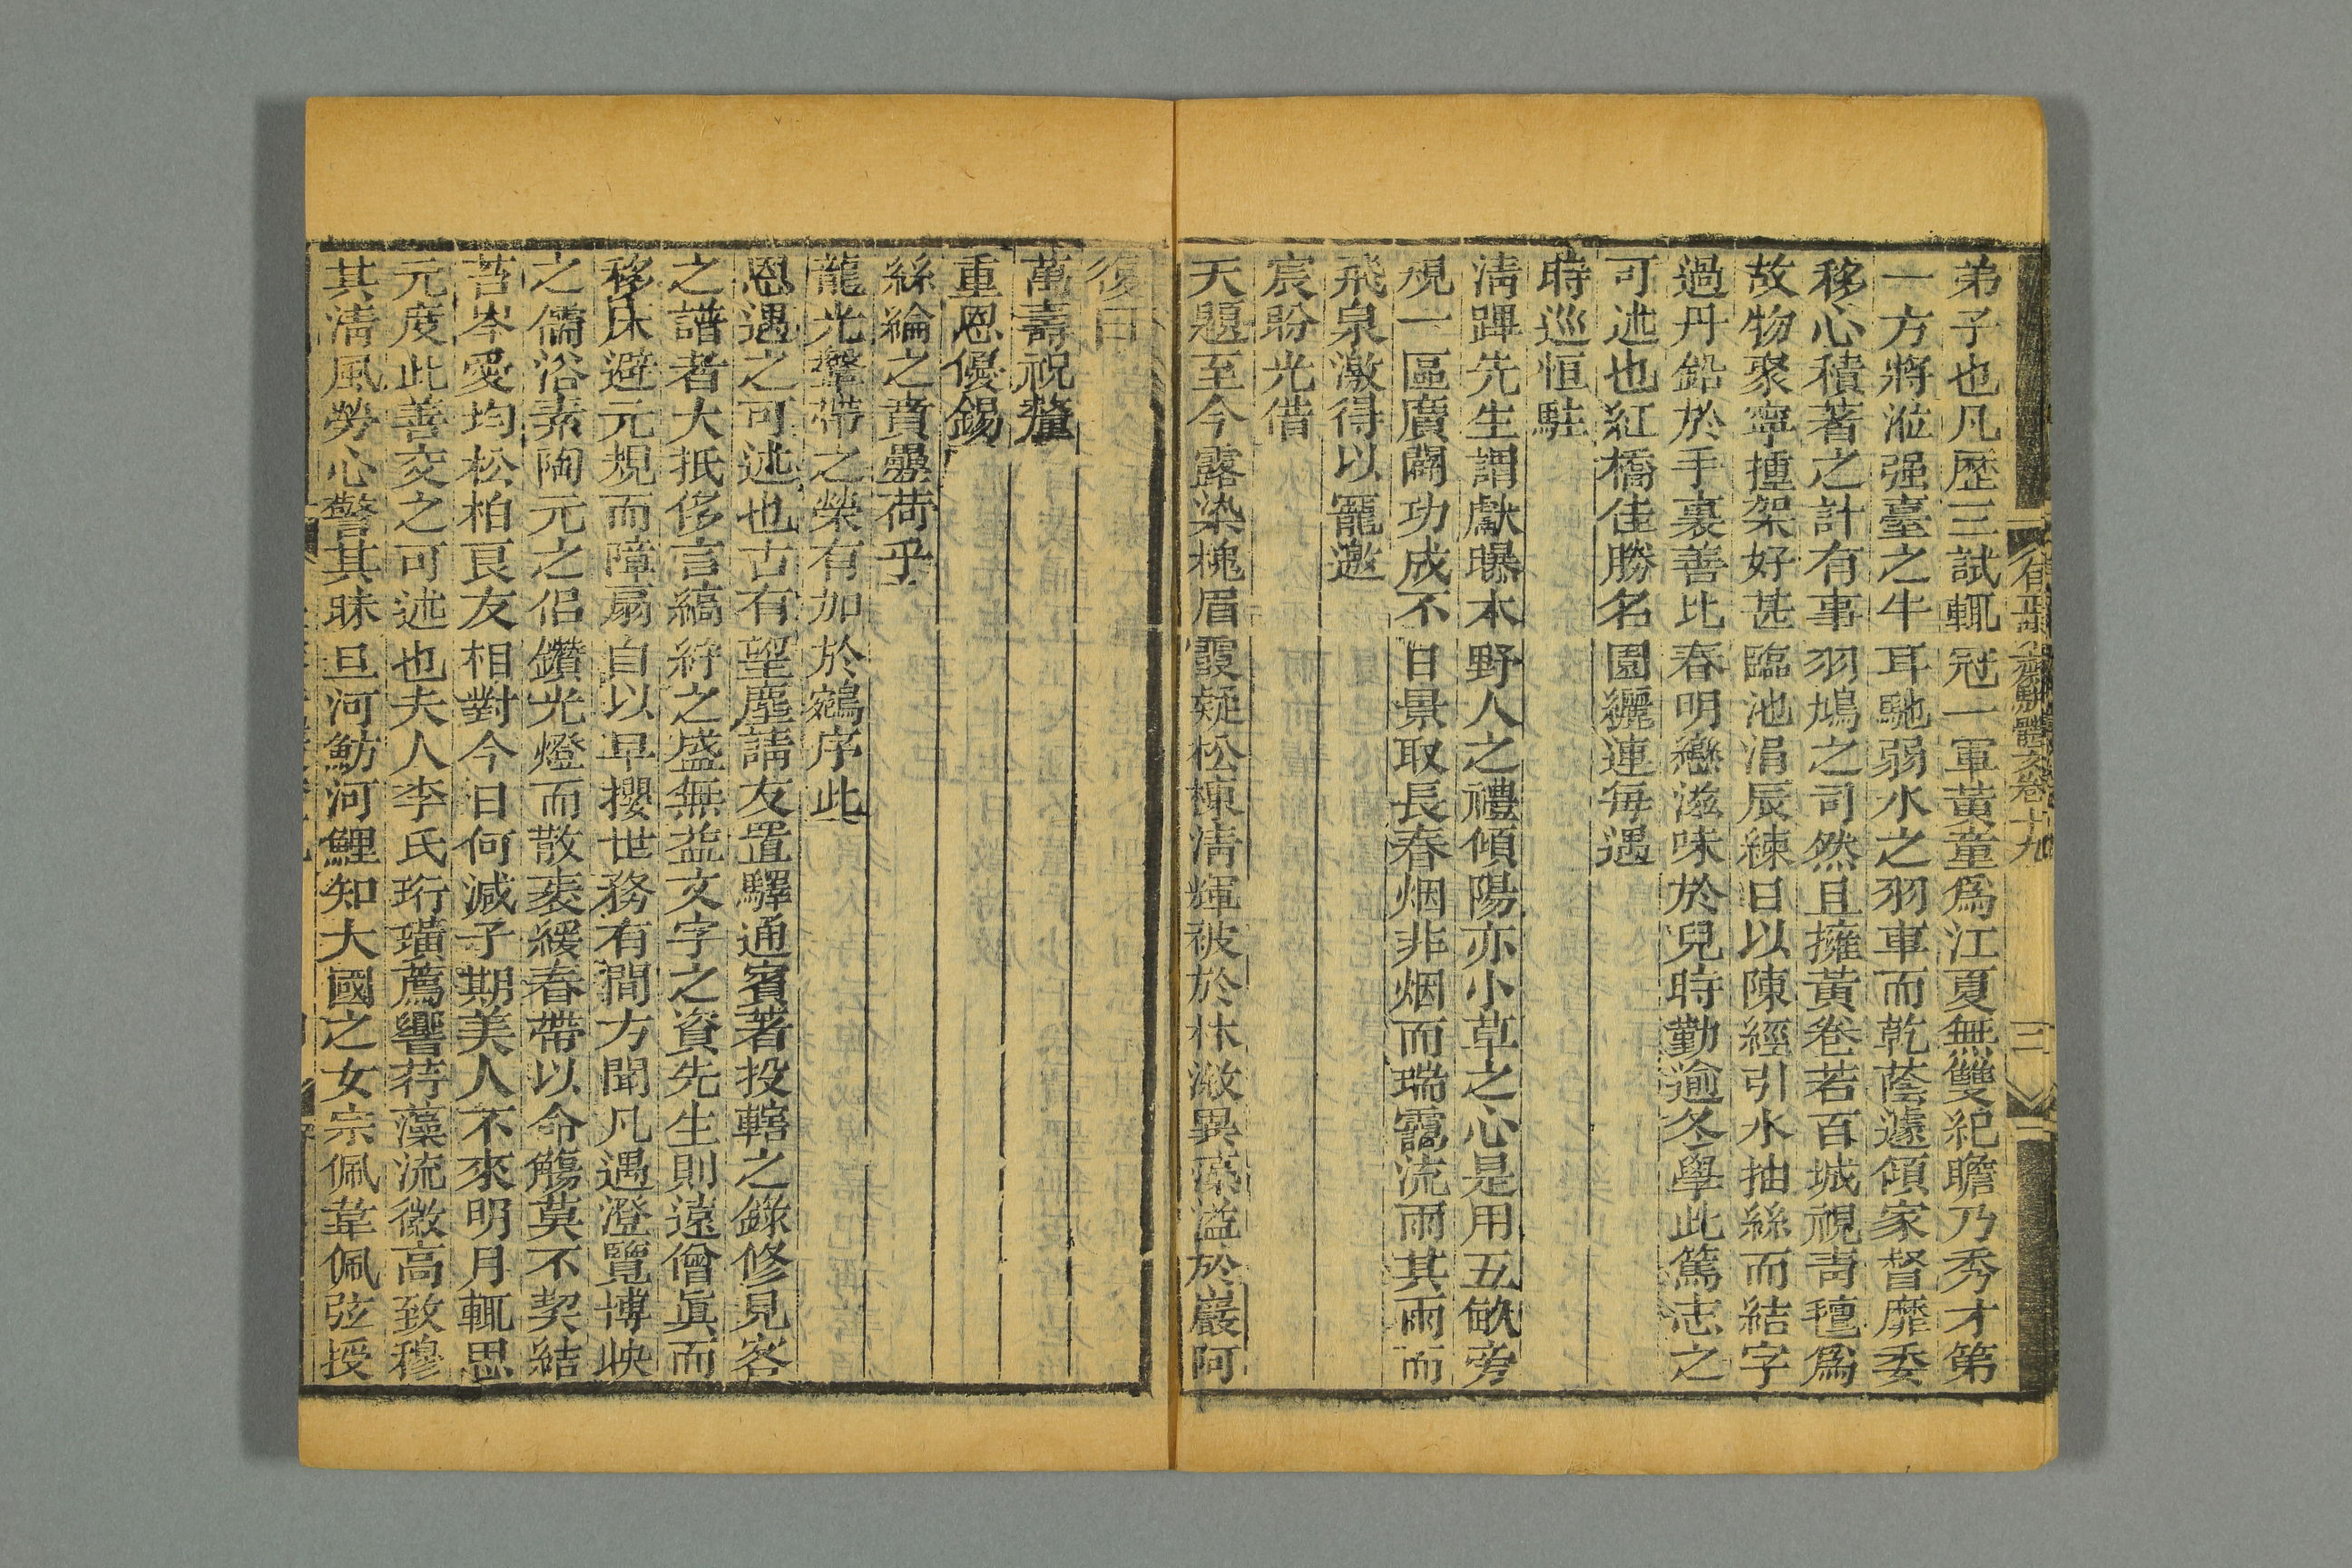 有正味齋駢體文卷十九
三
弟子也凡歷三試輒冠一軍黃童爲江夏無雙紀瞻乃秀才第
一方將涖强臺之牛耳馳弱水之羽車而乾蔭遽傾家督靡委
移心積著之計有事羽鳩之司然且擁黃卷若百城視靑氊爲
故物聚寧捶架好甚臨池涓辰練日以陳經引水抽絲而結字
過丹鉛於手裏善比春明戀滋味於兒時勤逾冬學此篤志之
可述也紅橋佳勝名園纚連每遇
時巡恒駐
淸蹕先生謂獻曝本野人之禮傾陽亦小草之心是用五畝旁
規一區廣闢功成不日景取長春烟非烟而瑞靄流雨其雨而
飛泉激得以寵邀
宸盼光借
天題至今露染槐眉霞凝松棟淸輝被於林漵異藻溢於巖阿
復日
萬壽祝釐
重恩優錫
絲綸之賁疊荷乎
龍光鞶帶之榮有加於鵷序此
恩遇之可述也古有望塵請友置驛通賓著投轄之錄修見客
之譜者大抵侈言縞紵之盛無益文字之資先生則遠僧眞而
移床避元規而障扇自以早攖世務有間方聞凡遇澄覽博映
之儒浴素陶元之侶鑽光燈而散袠緩春帶以命觴莫不契結
苔岑愛均松柏良友相對今日何減子期美人不來明月輒思
元度此善交之可述也夫人李氏珩璜薦響荇藻流徽高致穆
其淸風勞心警其昧旦河魴河鯉知大國之女宗佩韋佩弦授